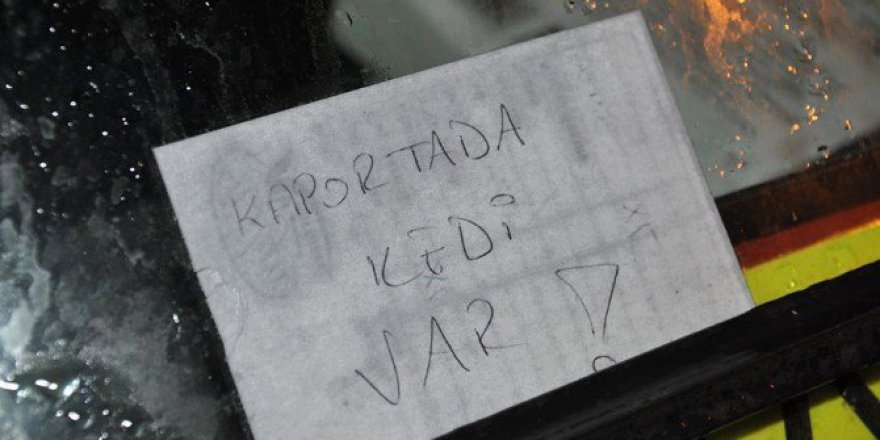 KAPORTADA
KEDİ
VAR !